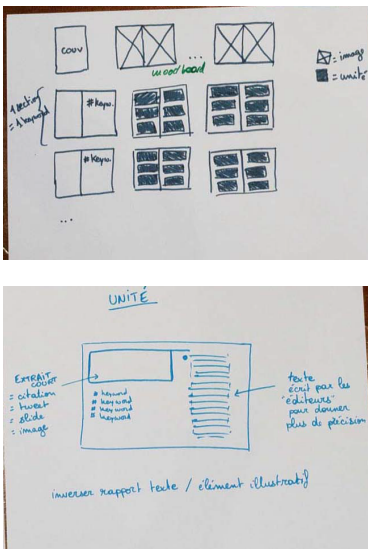 COUV
...
moodboard
= image
= unité
1 section
= 1 keyword
#Keyw.
#Keyw.
...
UNITÉ
EXTRAIT
COURT
= citation
= tweet
= slide
= image
# keyword
# keyword
# keyword
# keyword
texte
écrit par les
"éditeurs"
pour donner
plus de précision
inverser rapport texte / élément illustratif